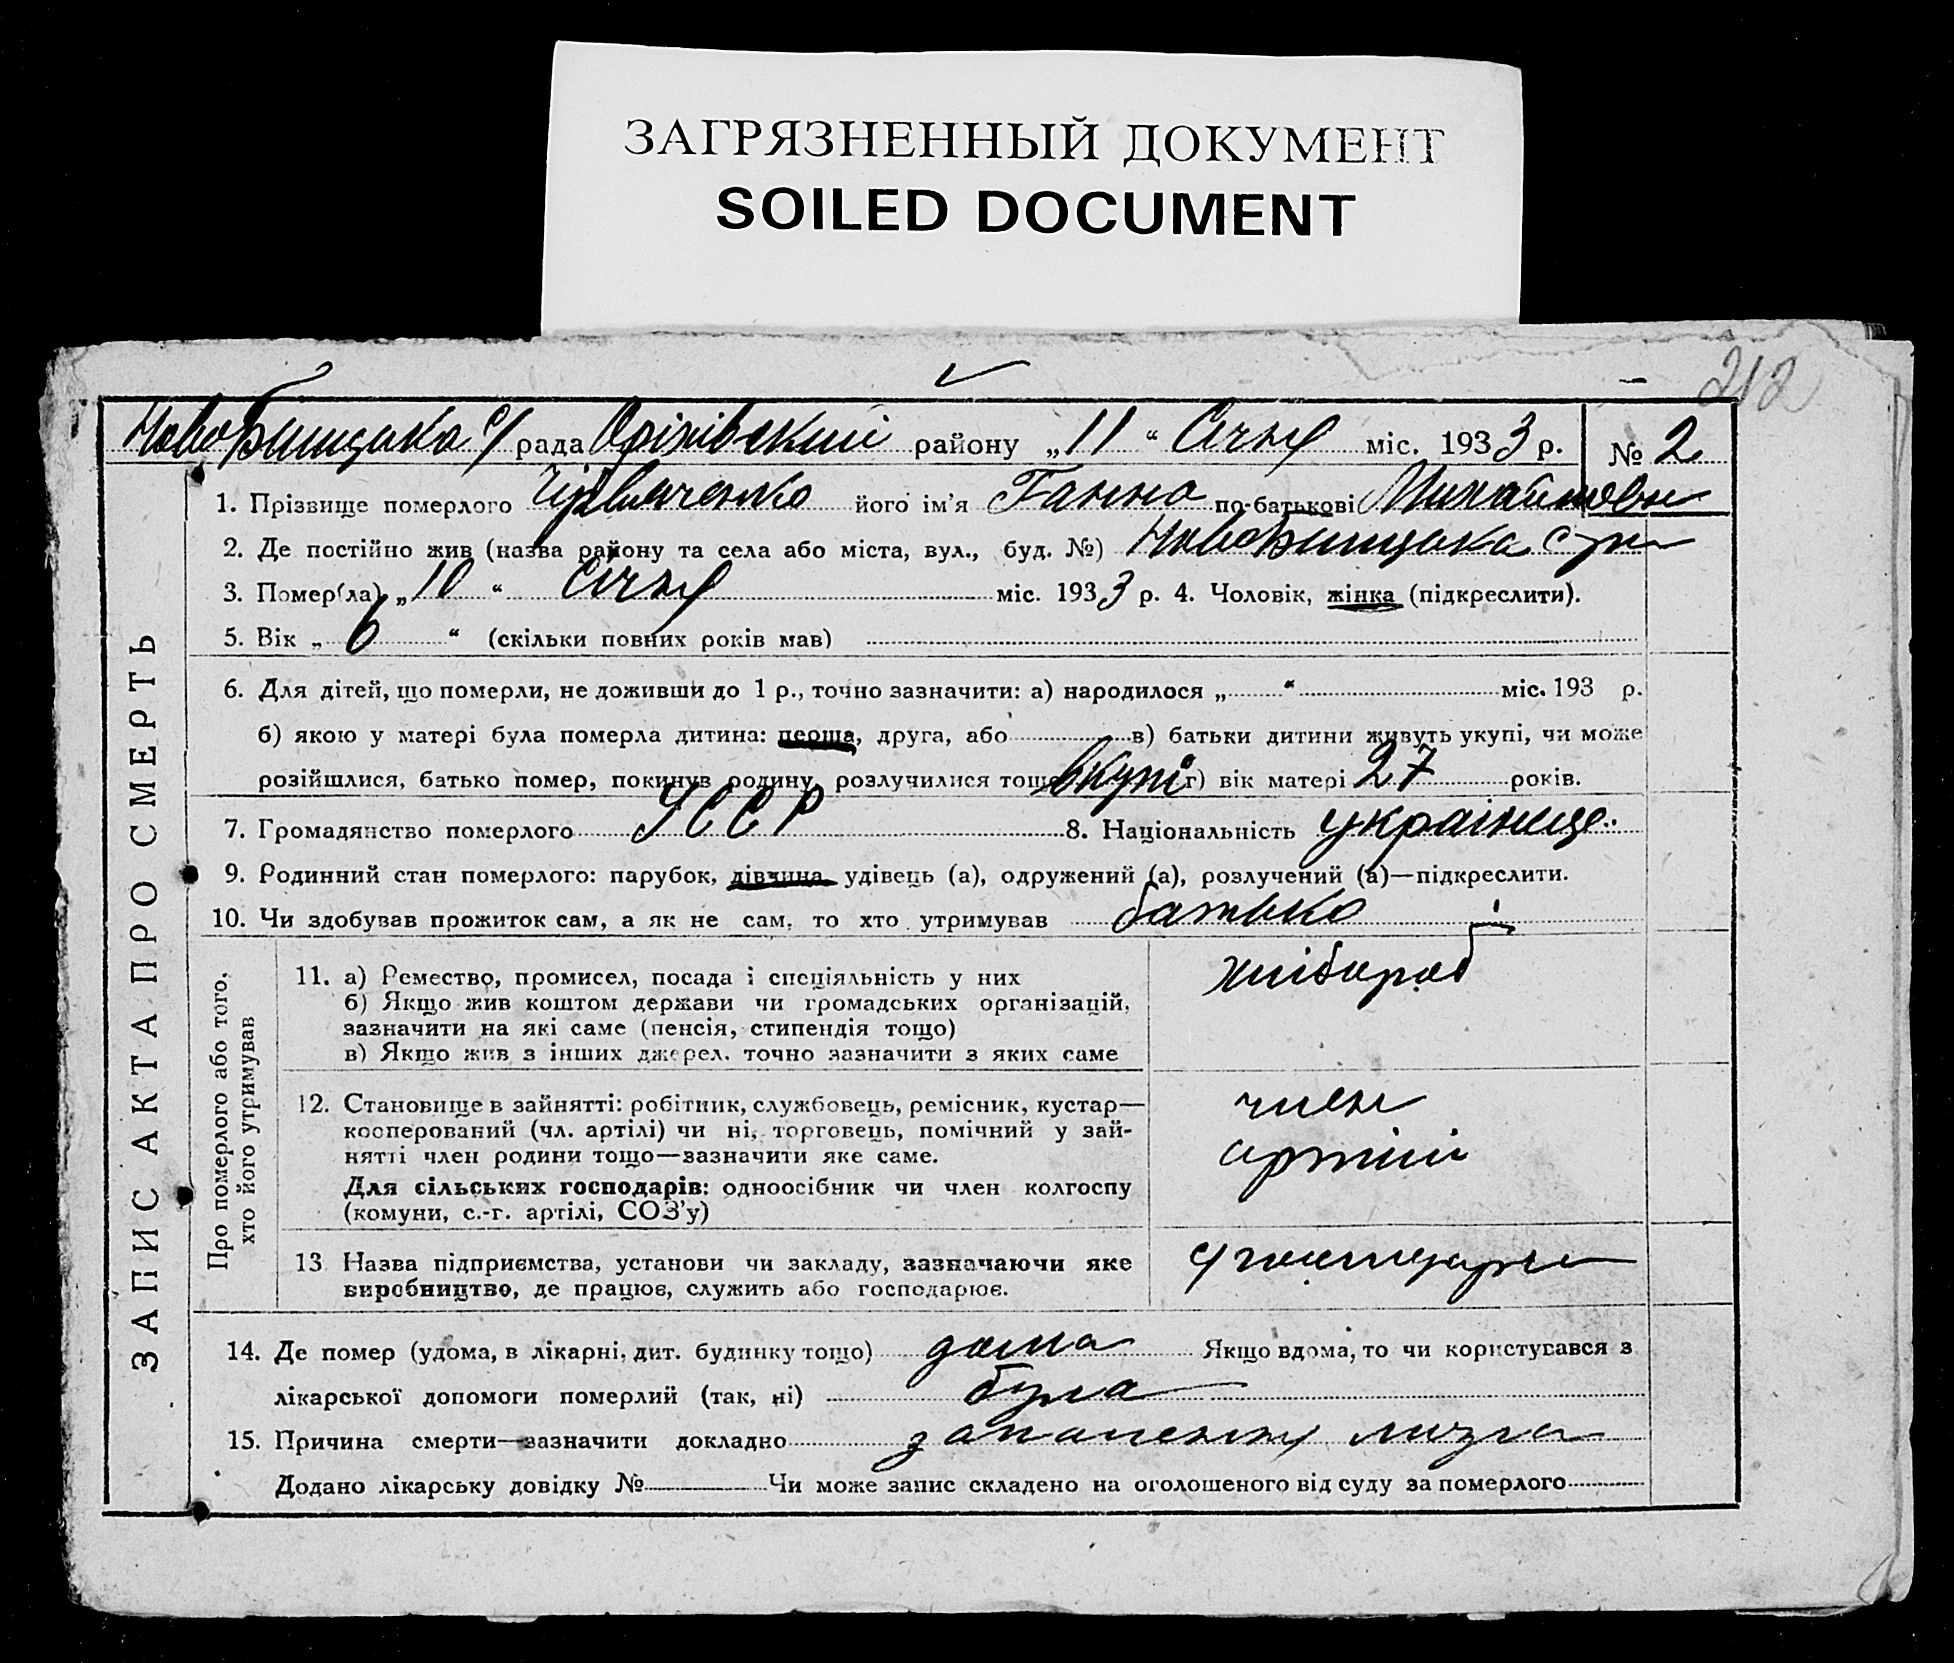 ЗАГРЯЗНЕННЫЙ ДОКУМЕНТ
SOILED DOCUMENT
212
рада Оріхівський району „11“ Січня міс. 1933 р. № 2
1. Прізвище померлого його ім'я Ганна по-батькові
2. Де постійно жив (назва району та села або міста, вул., буд. №)
3. Помер(ла) „10“ Січня міс. 1933 р. 4. Чоловік, жінка (підкреслити).
5. Вік „6“ (скільки повних років мав)
6. Для дітей, що померли, не доживши до 1 р., точно зазначити: а) народилося „ “ міс. 193 р.
б) якою у матері була померла дитина: перша, друга, або в) батьки дитини живуть укупі, чи може
розійшлися, батько помер, покинув родину, розлучилися тощо вкупі г) вік матері 27 років.
7. Громадянство померлого УССР 8. Національність
9. Родинний стан померлого: парубок, дівчина, удівець (а), одружений (а), розлучений (а)—підкреслити.
10. Чи здобував прожиток сам, а як не сам, то хто утримував батько
ЗАПИС АКТА ПРО СМЕРТЬ
Про померлого або того,
хто його утримував
11. а) Ремество, промисел, посада і спеціяльність у них
б) Якщо жив коштом держави чи громадських організацій,
зазначити на які саме (пенсія, стипендія тощо)
в) Якщо жив з інших джерел, точно зазначити з яких саме
хлібороб
12. Становище в зайнятті: робітник, службовець, ремісник, кустар—
кооперований (чл. артілі) чи ні, торговець, помічний у зай-
нятті член родини тощо—зазначити яке саме.
Для сільських господарів: одноосібник чи член колгоспу
(комуни, с.-г. артілі, СОЗ'у)
член
артілі
13 Назва підприємства, установи чи закладу, зазначаючи яке
виробництво, де працює, служить або господарює.
14. Де помер (удома, в лікарні, дит. будинку тощо) дома Якщо вдома, то чи користувався з
лікарської допомоги померлий (так, ні) була
15. Причина смерти—зазначити докладно запалення
Додано лікарську довідку № Чи може запис складено на оголошеного від суду за померлого